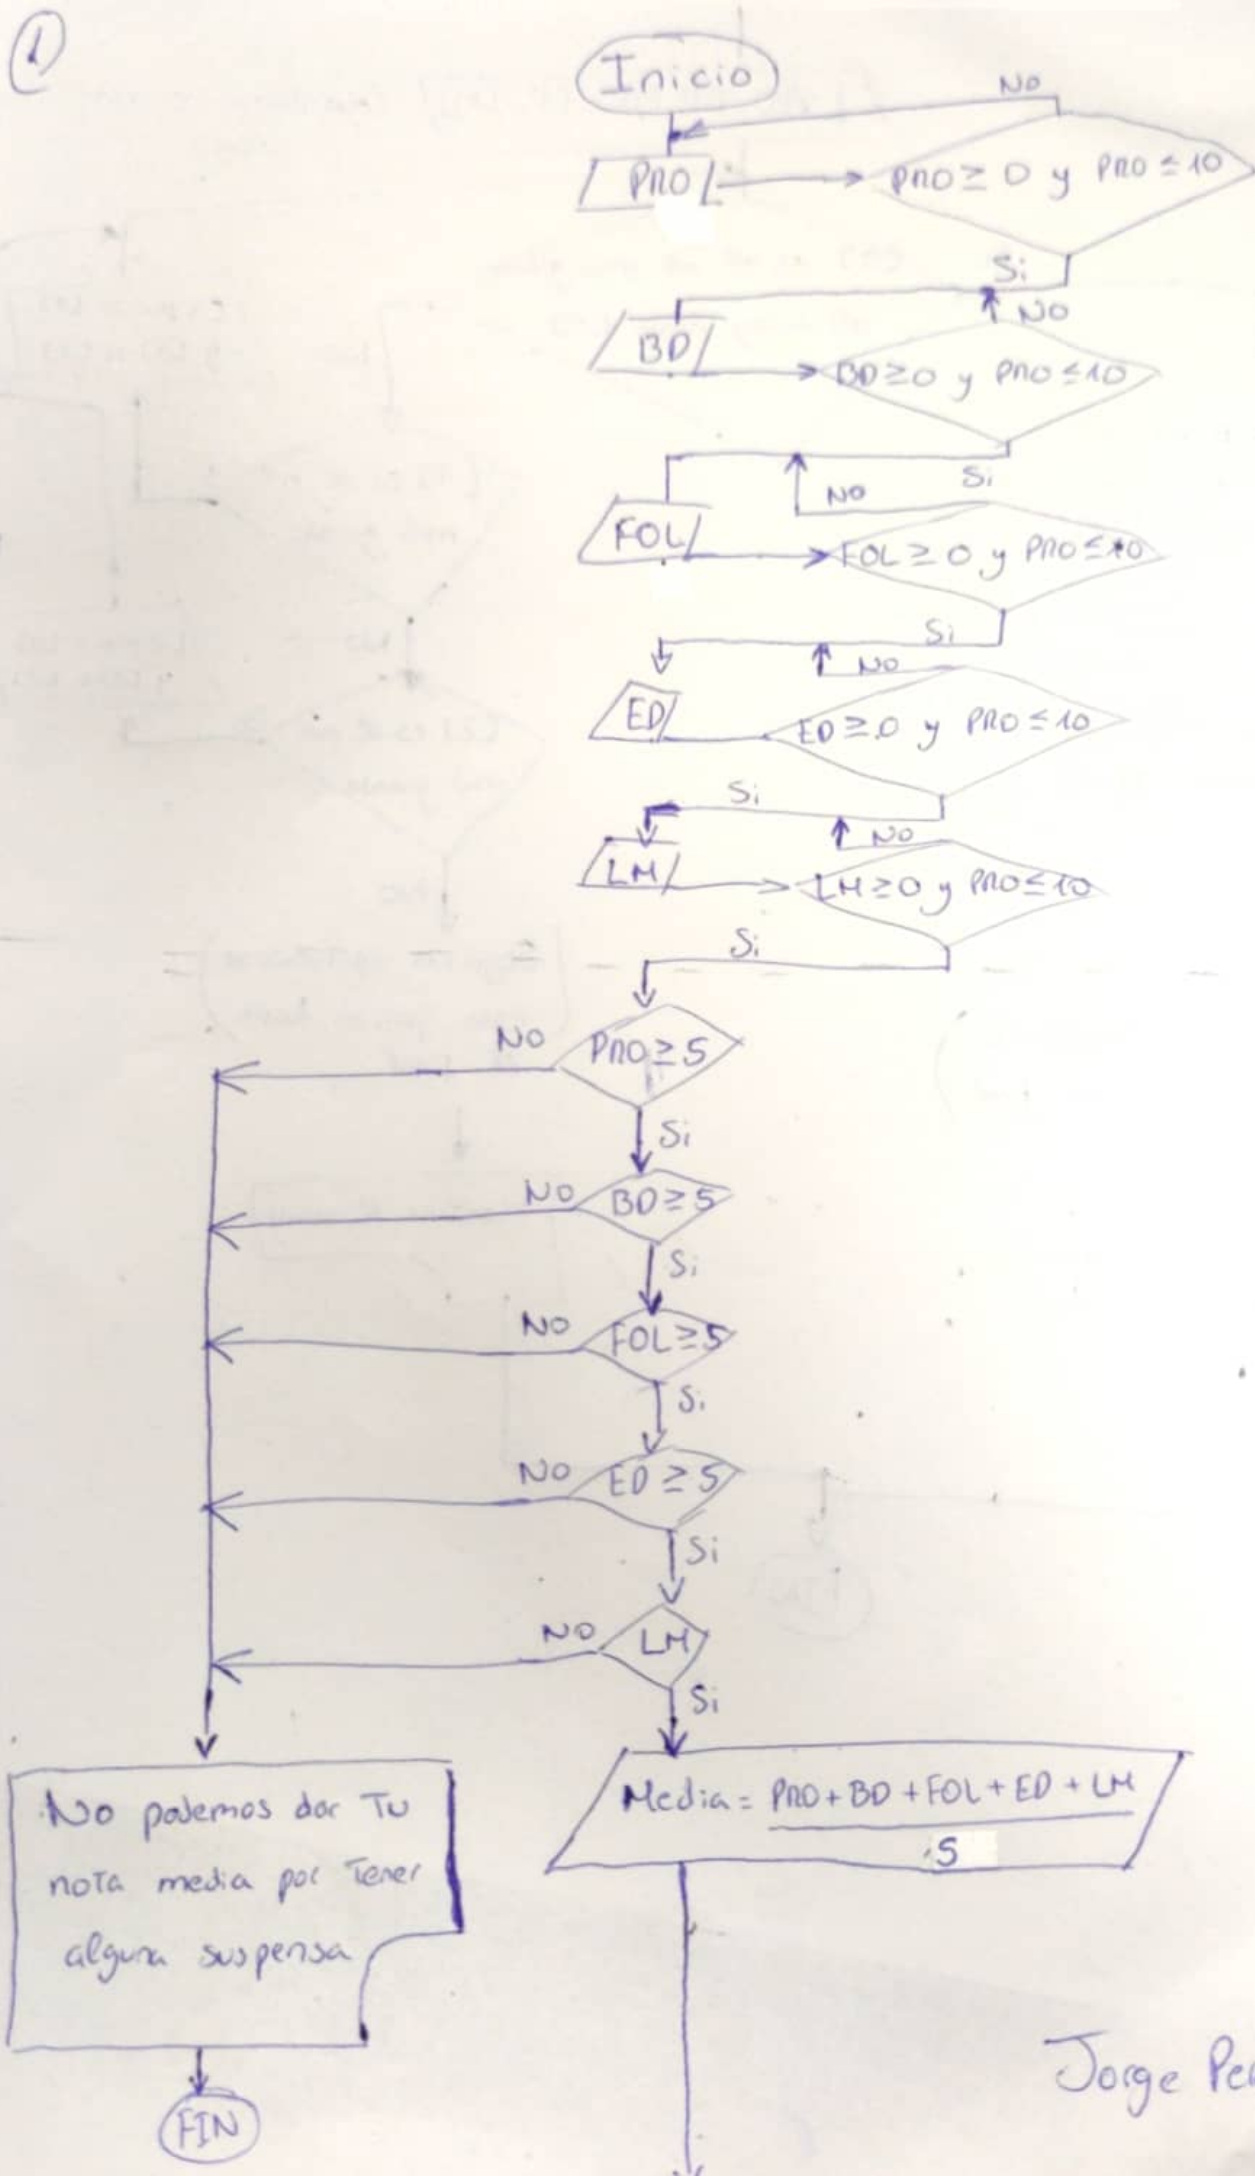 1
Inicio
No
PRO
PRO ≥ 0 y PRO ≤ 10
Si
NO
BD
BD ≥ 0 y PRO ≤ 10
Si
NO
FOL
FOL ≥ 0 y PRO ≤ 10
Si
NO
ED
ED ≥ 0 y PRO ≤ 10
Si
NO
LM
LM ≥ 0 y PRO ≤ 10
Si
NO
PRO ≥ 5
Si
NO
BD ≥ 5
Si
NO
FOL ≥ 5
Si
NO
ED ≥ 5
Si
NO
LM
Si
No podemos dar Tu
nota media por Tener
alguna suspensa
FIN
Media = PRO + BD + FOL + ED + LM
5
Jorge